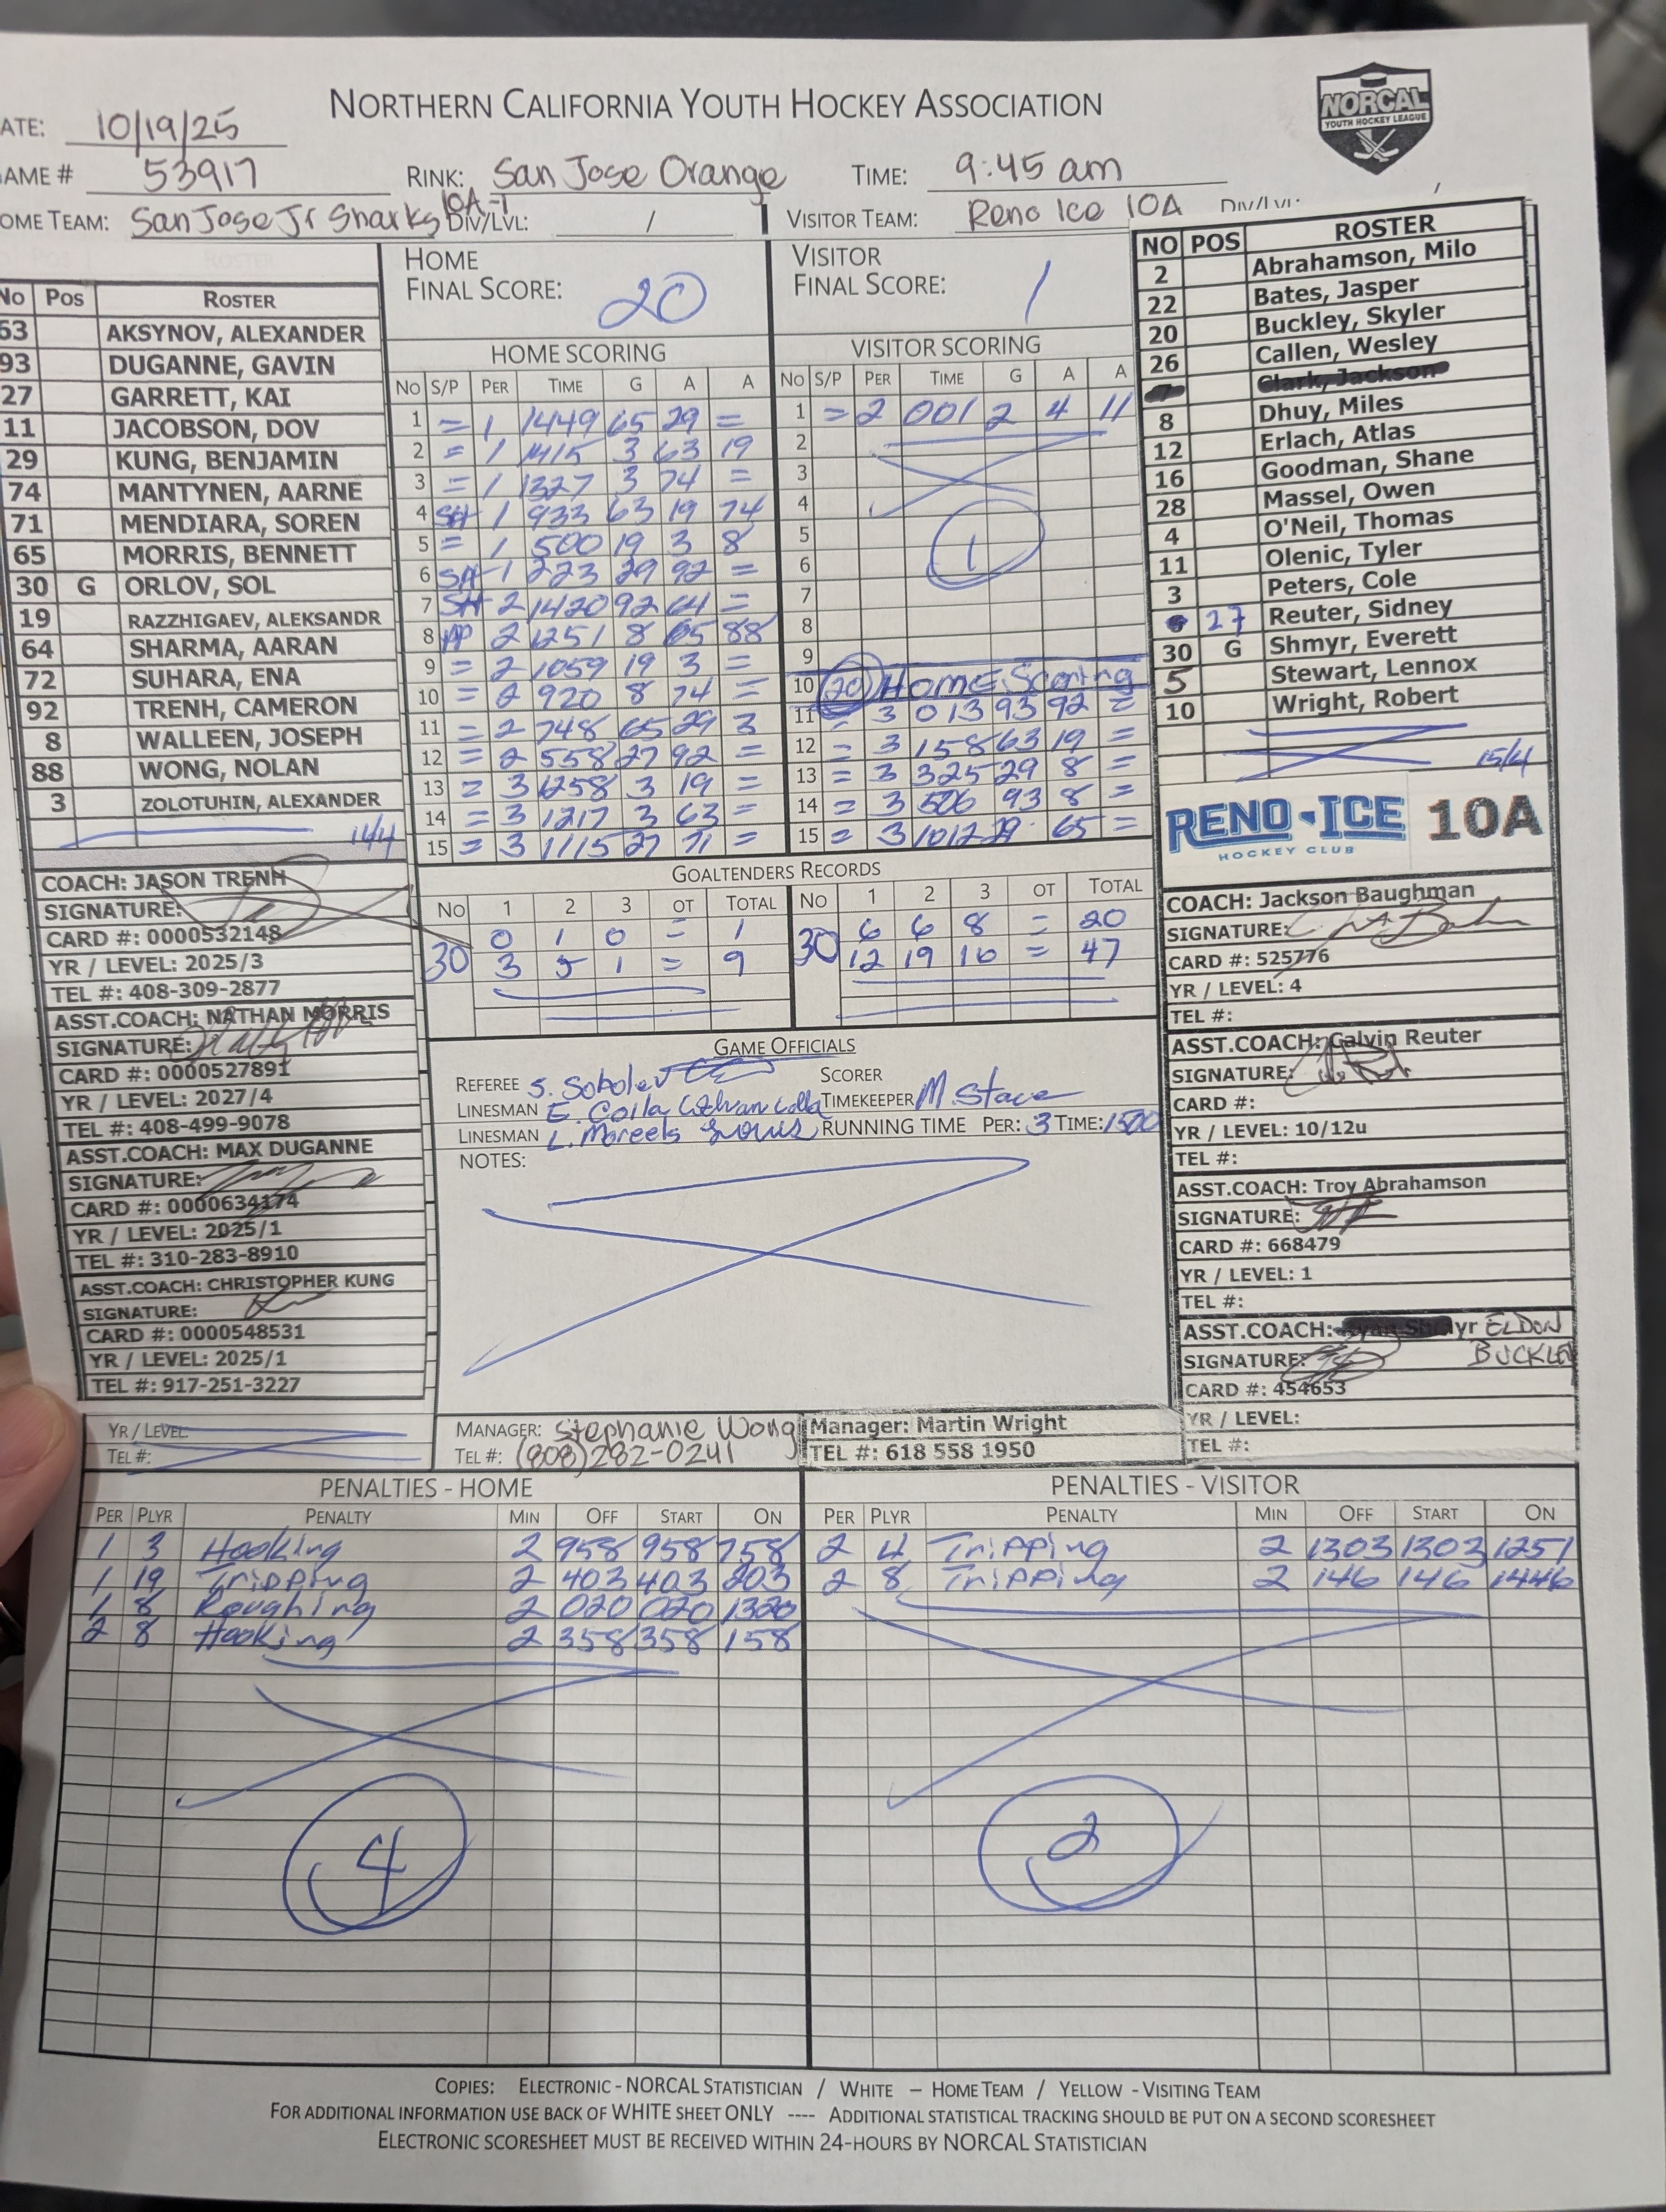 NORTHERN CALIFORNIA YOUTH HOCKEY ASSOCIATION
NORCAL
YOUTH HOCKEY LEAGUE
ATE: 10/19/25
AME # 53917 RINK: San Jose Orange TIME: 9:45 am
OME TEAM: San Jose Jr Sharks 10A-1 DIV/LVL: / VISITOR TEAM: Reno Ice 10A DIV/LVL:
HOME FINAL SCORE: 20
VISITOR FINAL SCORE: 1
No POS ROSTER
63 AKSYNOV, ALEXANDER
93 DUGANNE, GAVIN
27 GARRETT, KAI
11 JACOBSON, DOV
29 KUNG, BENJAMIN
74 MANTYNEN, AARNE
71 MENDIARA, SOREN
65 MORRIS, BENNETT
30 G ORLOV, SOL
19 RAZZHIGAEV, ALEKSANDR
64 SHARMA, AARAN
72 SUHARA, ENA
92 TRENH, CAMERON
8 WALLEEN, JOSEPH
88 WONG, NOLAN
3 ZOLOTUHIN, ALEXANDER
HOME SCORING
NO S/P PER TIME G A A
1 = 1 1449 65 29 =
2 = 1 1415 3 63 19
3 = 1 1327 3 74 =
4 SH 1 933 63 19 74
5 = 1 500 19 3 8
6 SH 1 223 29 92 =
7 SH 2 1420 92 64 =
8 PP 2 1251 8 65 88
9 = 2 1059 19 3 =
10 = 2 920 8 74 =
11 = 2 748 65 29 3
12 = 2 558 27 92 =
13 = 3 1258 3 19 =
14 = 3 1217 3 63 =
15 = 3 1115 27 71 =
VISITOR SCORING
NO S/P PER TIME G A A
1 = 2 001 2 4 11
2
3
4
5
1
6
7
8
9
10 20 Home Scoring
11 = 3 1013 93 92 =
12 = 3 158 63 19 =
13 = 3 325 29 8 =
14 = 3 506 93 8 =
15 = 3 1012 29 65 =
NO POS ROSTER
2 Abrahamson, Milo
22 Bates, Jasper
20 Buckley, Skyler
26 Callen, Wesley
Clark, Jackson
8 Dhuy, Miles
12 Erlach, Atlas
16 Goodman, Shane
28 Massel, Owen
4 O'Neil, Thomas
11 Olenic, Tyler
3 Peters, Cole
27 Reuter, Sidney
30 G Shmyr, Everett
5 Stewart, Lennox
10 Wright, Robert
15/4
RENO ICE 10A
HOCKEY CLUB
COACH: JASON TRENH
SIGNATURE:
CARD #: 0000532148
YR / LEVEL: 2025/3
TEL #: 408-309-2877
ASST.COACH: NATHAN MORRIS
SIGNATURE:
CARD #: 0000527891
YR / LEVEL: 2027/4
TEL #: 408-499-9078
ASST.COACH: MAX DUGANNE
SIGNATURE:
CARD #: 0000634174
YR / LEVEL: 2025/1
TEL #: 310-283-8910
ASST.COACH: CHRISTOPHER KUNG
SIGNATURE:
CARD #: 0000548531
YR / LEVEL: 2025/1
TEL #: 917-251-3227
YR / LEVEL:
TEL #:
GOALTENDERS RECORDS
NO 1 2 3 OT TOTAL NO 1 2 3 OT TOTAL
30 0 1 0 = 1 30 6 6 8 = 20
3 5 1 = 9 12 19 16 = 47
GAME OFFICIALS
REFEREE S. Sobolev SCORER
LINESMAN E. Colla TIMEKEEPER M. Stace
LINESMAN L. Moreels RUNNING TIME PER: 3 TIME: 1500
NOTES:
MANAGER: Stephanie Wong
TEL #: (808)282-0241
Manager: Martin Wright
TEL #: 618 558 1950
COACH: Jackson Baughman
SIGNATURE:
CARD #: 525776
YR / LEVEL: 4
TEL #:
ASST.COACH: Calvin Reuter
SIGNATURE:
CARD #:
YR / LEVEL: 10/12u
TEL #:
ASST.COACH: Troy Abrahamson
SIGNATURE:
CARD #: 668479
YR / LEVEL: 1
TEL #:
ASST.COACH: yr ELDON BUCKLEY
SIGNATURE:
CARD #: 454653
YR / LEVEL:
TEL #:
PENALTIES - HOME
PER PLYR PENALTY MIN OFF START ON
1 3 Hooking 2 958 958 758
1 19 Tripping 2 403 403 203
1 8 Roughing 2 020 020 1320
2 8 Hooking 2 358 358 158
4
PENALTIES - VISITOR
PER PLYR PENALTY MIN OFF START ON
2 4 Tripping 2 1303 1303 1251
2 8 Tripping 2 146 146 1446
2
COPIES: ELECTRONIC - NORCAL STATISTICIAN / WHITE – HOME TEAM / YELLOW - VISITING TEAM
FOR ADDITIONAL INFORMATION USE BACK OF WHITE SHEET ONLY ---- ADDITIONAL STATISTICAL TRACKING SHOULD BE PUT ON A SECOND SCORESHEET
ELECTRONIC SCORESHEET MUST BE RECEIVED WITHIN 24-HOURS BY NORCAL STATISTICIAN